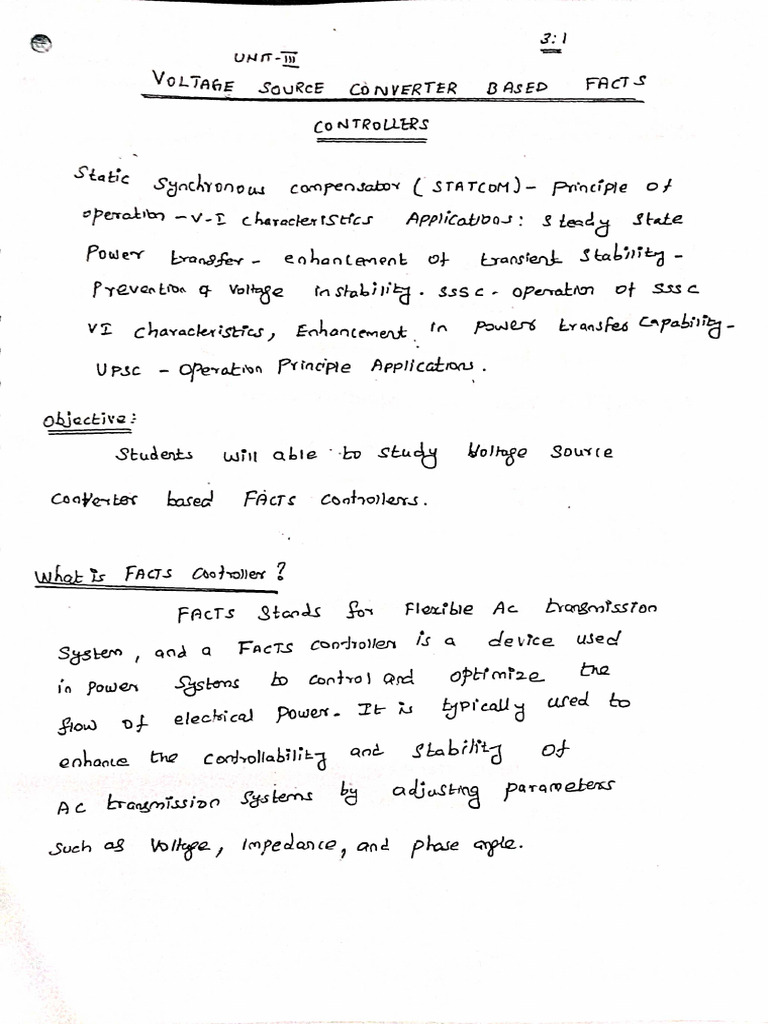 3:1
UNIT-III
VOLTAGE SOURCE CONVERTER BASED FACTS
CONTROLLERS
Static Synchronous compensator (STATCOM) - Principle of
operation - V-I characteristics Applications: Steady State
Power transfer - enhancement of transient Stability -
Prevention of Voltage instability. SSSC - operation of SSSC
VI characteristics, Enhancement in power transfer capability -
UPSC - Operation Principle Applications.
Objective:
Students will able to study Voltage Source
Converter based FACTS Controllers.
What is FACTS Controller?
FACTS Stands for Flexible AC transmission
System, and a FACTS controller is a device used
in power Systems to control and optimize the
flow of electrical power. It is typically used to
enhance the controllability and stability of
AC transmission Systems by adjusting parameters
Such as Voltage, impedance, and phase angle.